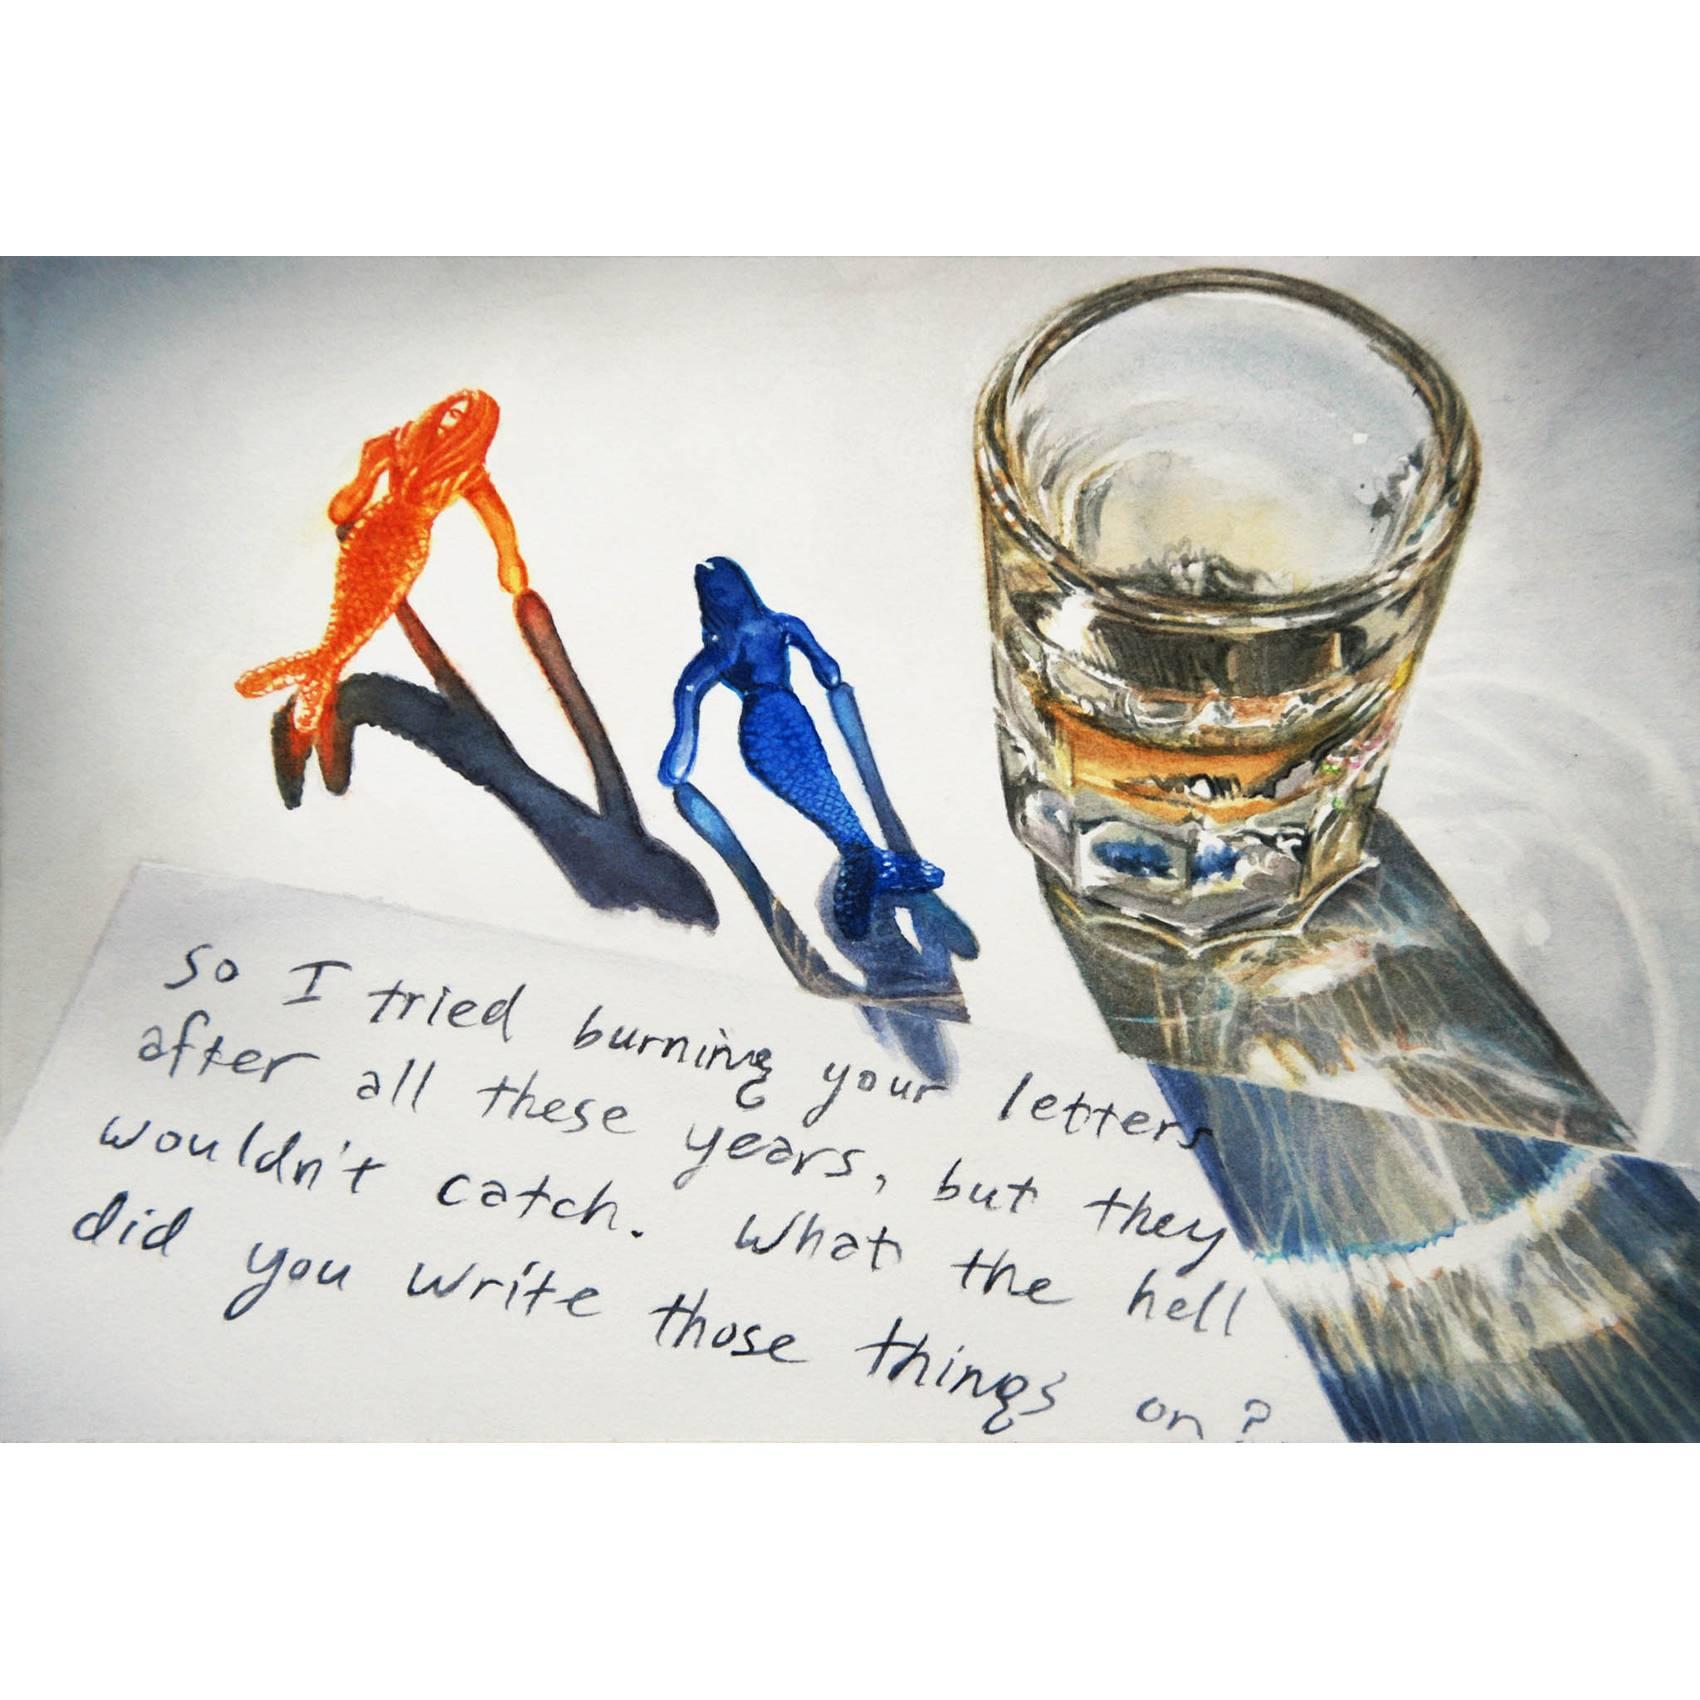 so I tried burning your letters
after all these years, but they
wouldn't catch. What the hell
did you write those things on?